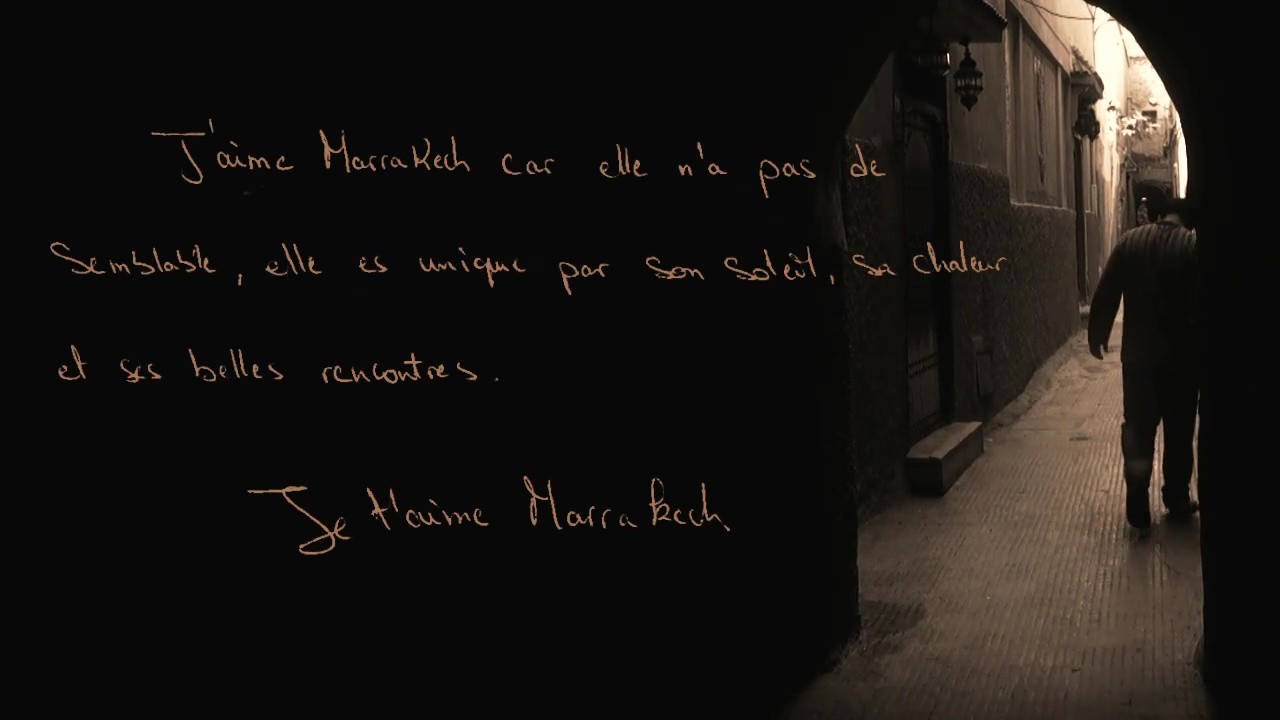 J'aime Marrakech car elle n'a pas de
Semblable, elle es unique par son soleil, sa chaleur
et ses belles rencontres.
Je t'aime Marrakech